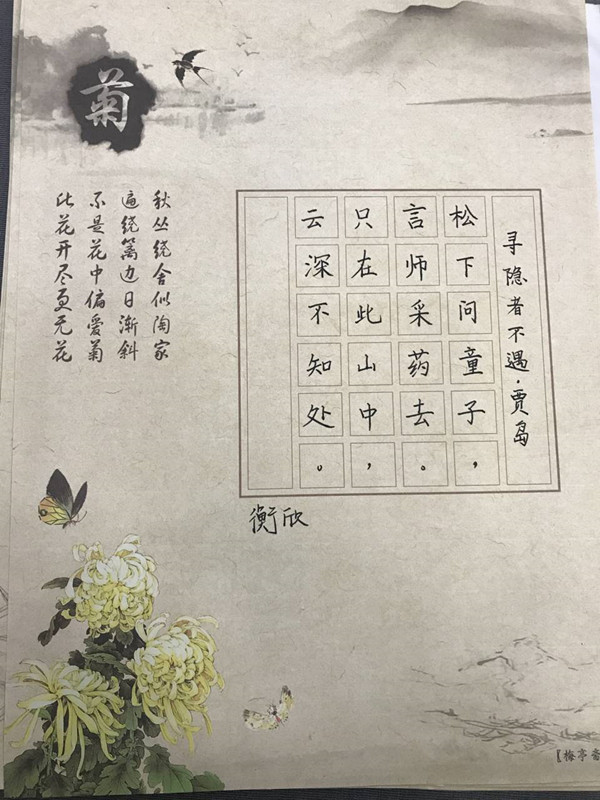 菊
寻隐者不遇·贾岛
松下问童子，
言师采药去。
只在此山中，
云深不知处。
衡欣
秋丛绕舍似陶家
遍绕篱边日渐斜
不是花中偏爱菊
此花开尽更无花
【梅亭斋